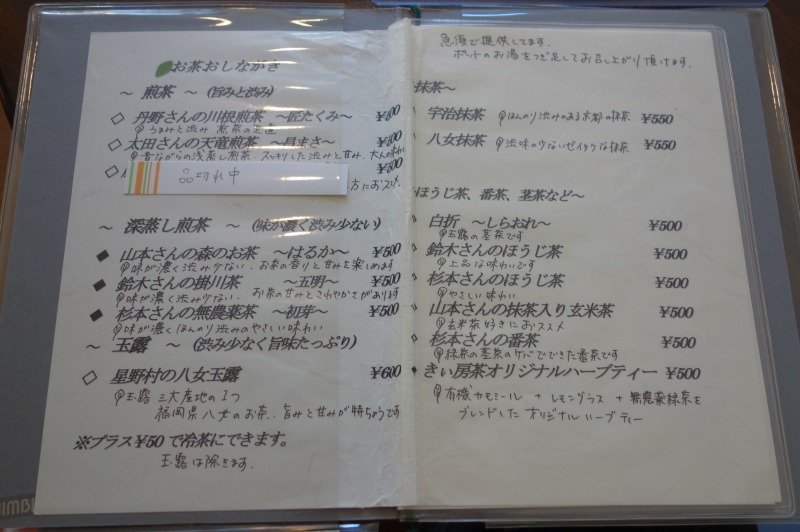 お茶おしながき
～ 煎茶 ～ （旨みと渋み）
◇ 丹野さんの川根煎茶 ～匠たくみ～ ¥600
うまみと渋み 煎茶の王道
◇ 太田さんの天竜煎茶 ¥600
昔ながらの浅蒸し煎茶。スッキリした渋みと甘み、大人の味わい
¥600
品切れ中
方におススメ
～ 深蒸し煎茶 ～ （味が濃く渋み少ない）
◆ 山本さんの森のお茶 ～はるか～ ¥500
味が濃く渋み少ない。お茶の香りと甘みを楽しめます
◆ 鈴木さんの掛川茶 ～五明～ ¥500
味が濃く渋み少ない。 お茶の甘みとさわやかさがあります
◆ 杉本さんの無農薬茶 ～初芽～ ¥500
味が濃くほんのり渋みのやさしい味わい
～ 玉露 ～ （渋み少なく旨味たっぷり）
◇ 星野村の八女玉露 ¥600
玉露 三大産地の1つ
福岡県八女のお茶。旨みと甘みが特ちょうです
※プラス¥50で冷茶にできます。
玉露は除きます。
急須で提供してます。
ポットのお湯をつぎ足してお召し上がり頂けます。
抹茶～
宇治抹茶 ほんのり渋みのある京都の抹茶 ¥550
八女抹茶 渋味の少ないゼイタクな抹茶 ¥550
ほうじ茶、番茶、茎茶など～
白折 ～しらおれ～ ¥500
玉露の茎茶です
鈴木さんのほうじ茶 ¥500
上品な味わいです
杉本さんのほうじ茶 ¥500
やさしい味わい
山本さんの抹茶入り玄米茶 ¥500
玄米茶好きにおススメ
杉本さんの番茶 ¥500
緑茶の茎茶のケバでできた番茶です
◆ きい房茶オリジナルハーブティー ¥500
有機カモミール + レモングラス + 無農薬緑茶を
ブレンドした オリジナルハーブティー